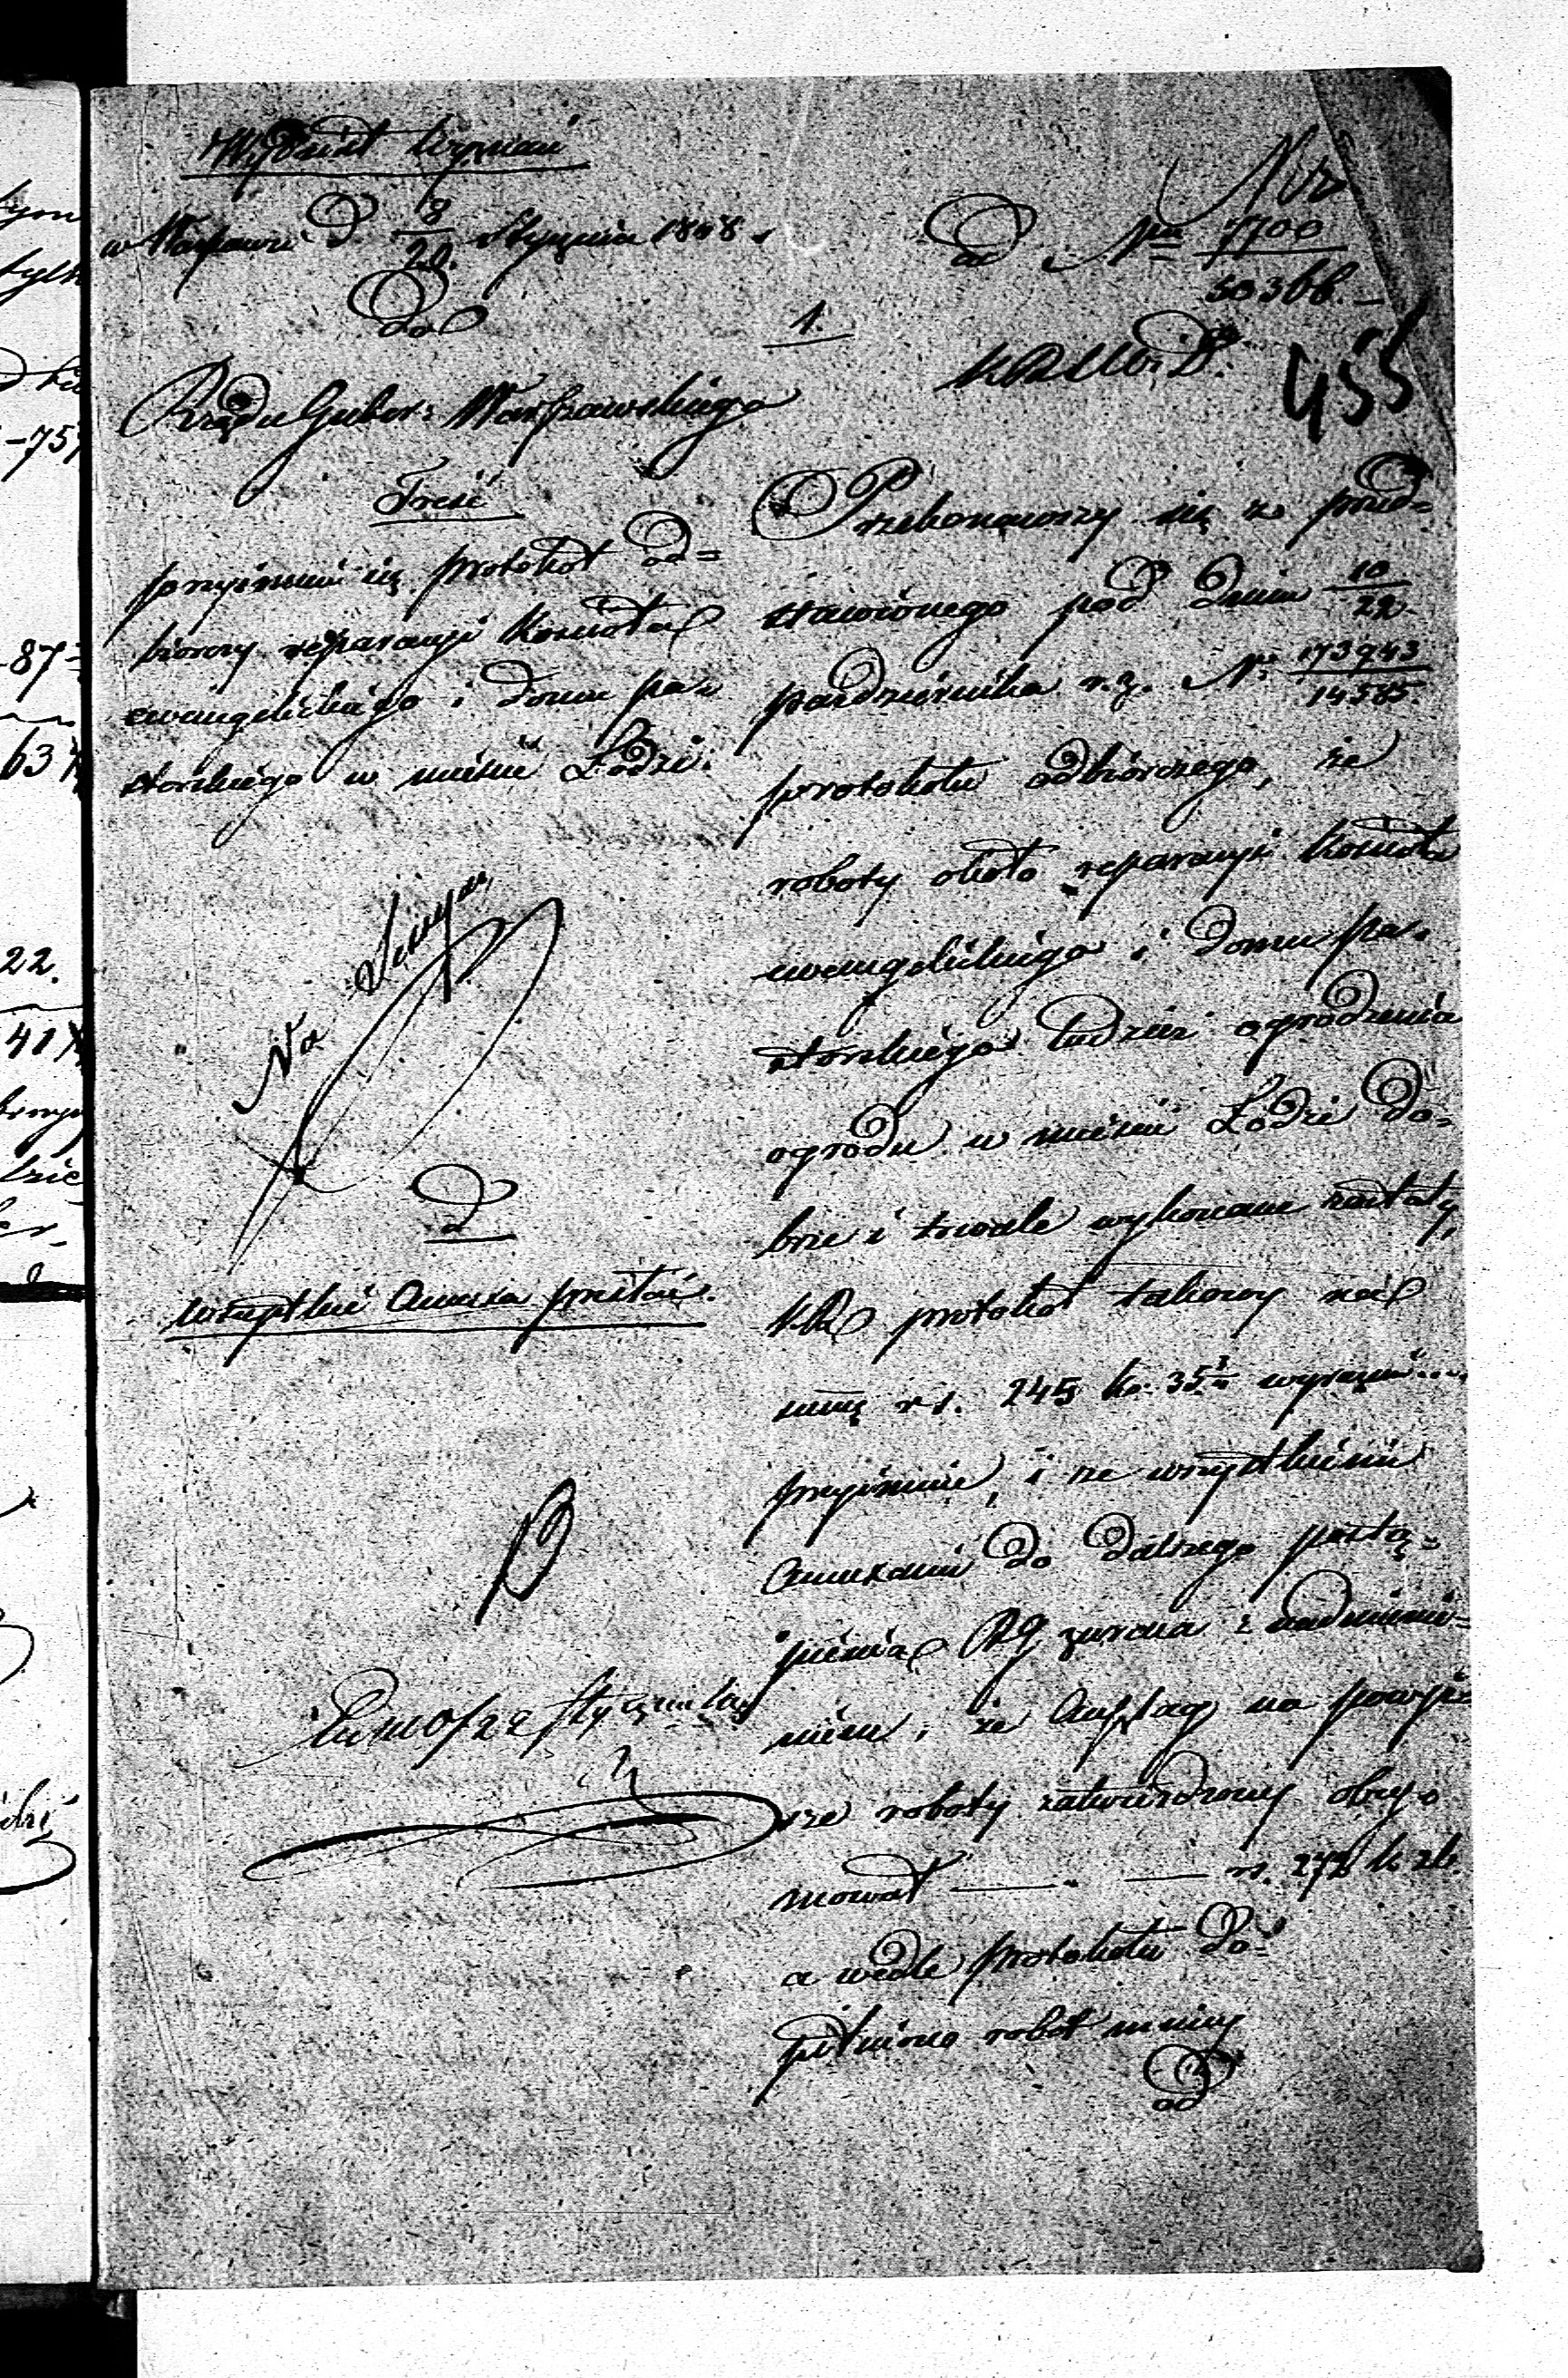 Wydział Wyznań
w Warszawie d 8/20 Stycznia 1848.
Do
Rządu Guber: Warszawskiego
Treść
przyjmuie się protokół od=
biorczy reparacyi kościoła
ewangelickiego i domu pa=
storskiego w mieście Łodzi.
Na
d
wszystkie Annexa przełać.
1.
Nro
ad Nra 7700/50366.
K R S W i D.
455
Przekonawszy się z przed=
stawionego pod dniem 10/22
października r. z. No 173943/14585.
protokołu odbiorczego, że
roboty około reparacyi kościoła
ewangelickiego i domu pa=
storskiego tudzież ogrodzenia
ogrodu w mieście Łodzi do=
brze i trwale wykonane zostały,
K.R. protokół takowy na
summę rs. 245 ko. 35½ wyraźnie
przyjmuie, i ze wszystkiemi
Annexami do dalszego postą=
pienia RG zwraca z nadmienie=
niem, że Anszlag na powyż=
sze roboty zatwierdzony obej=
mował — " — rs. 272 k. 26.
a wedle protokołu do=
pełniono robót mniej
od